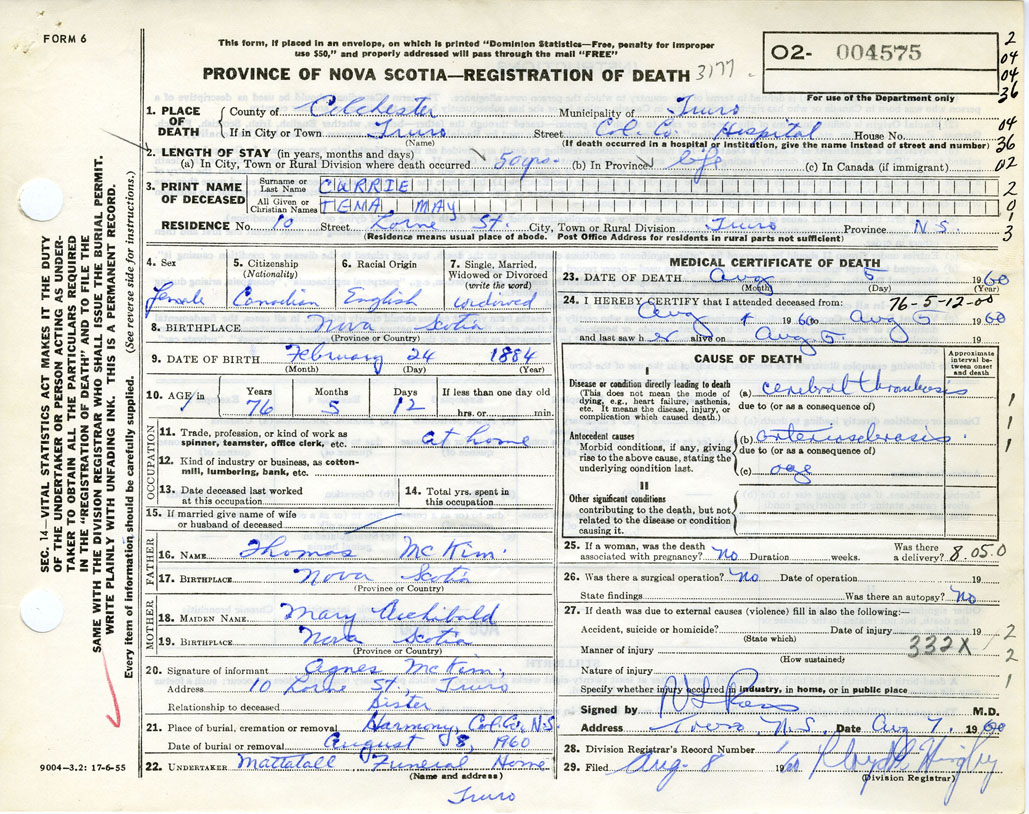 FORM 6
This form, if placed in an envelope, on which is printed "Dominion Statistics—Free, penalty for improper
use $50," and properly addressed will pass through the mail "FREE"
PROVINCE OF NOVA SCOTIA—REGISTRATION OF DEATH 3177
02- 004575
For use of the Department only
2
04
04
36
04
36
02
2
0
3
SEC. 14—VITAL STATISTICS ACT MAKES IT THE DUTY
OF THE UNDERTAKER OR PERSON ACTING AS UNDER-
TAKER TO OBTAIN ALL THE PARTICULARS REQUIRED
IN THE "REGISTRATION OF DEATH" AND FILE THE
SAME WITH THE DIVISION REGISTRAR WHO SHALL ISSUE THE BURIAL PERMIT.
WRITE PLAINLY WITH UNFADING INK. THIS IS A PERMANENT RECORD.
Every item of information should be carefully supplied. (See reverse side for instructions.)
1. PLACE OF DEATH
County of Colchester Municipality of Truro
If in City or Town Truro Street Col. Co. Hospital House No.
(Name) (If death occurred in a hospital or institution, give the name instead of street and number)
2. LENGTH OF STAY (in years, months and days)
(a) In City, Town or Rural Division where death occurred 50 yrs. (b) In Province life (c) In Canada (if immigrant)
3. PRINT NAME OF DECEASED
Surname or Last Name CURRIE
All Given or Christian Names TEMA MAY
RESIDENCE No. 10 Street Lorne St. City, Town or Rural Division Truro Province N.S.
(Residence means usual place of abode. Post Office Address for residents in rural parts not sufficient)
4. Sex Female
5. Citizenship (Nationality) Canadian
6. Racial Origin English
7. Single, Married, Widowed or Divorced (write the word) widowed
8. BIRTHPLACE Nova Scotia
(Province or Country)
9. DATE OF BIRTH February 24 1884
(Month) (Day) (Year)
10. AGE in Years 76 Months 5 Days 12 If less than one day old
hrs. or min.
OCCUPATION
11. Trade, profession, or kind of work as spinner, teamster, office clerk, etc. at home
12. Kind of industry or business, as cotton-mill, lumbering, bank, etc.
13. Date deceased last worked at this occupation
14. Total yrs. spent in this occupation
15. If married give name of wife or husband of deceased
FATHER
16. NAME Thomas McKim.
17. BIRTHPLACE Nova Scotia
(Province or Country)
MOTHER
18. MAIDEN NAME Mary Archibald
19. BIRTHPLACE Nova Scotia
(Province or Country)
20. Signature of informant Agnes McKim.
Address 10 Lorne St., Truro
Relationship to deceased Sister
21. Place of burial, cremation or removal Harmony, Col. Co., N.S
Date of burial or removal August 8, 1960
22. UNDERTAKER Mattatall Funeral Home
(Name and address)
Truro
9004—3.2: 17-6-55
MEDICAL CERTIFICATE OF DEATH
23. DATE OF DEATH Aug 5 1960
(Month) (Day) (Year)
24. I HEREBY CERTIFY that I attended deceased from: 76-5-12-00
Aug 4 1960 to Aug 5 1960
and last saw her alive on Aug 5. 19
CAUSE OF DEATH
Approximate interval between onset and death
I
Disease or condition directly leading to death
(This does not mean the mode of dying, e.g., heart failure, asthenia, etc. It means the disease, injury, or complication which caused death.)
(a) cerebral thrombosis
due to (or as a consequence of)
Antecedent causes
Morbid conditions, if any, giving rise to the above cause, stating the underlying condition last.
(b) arteriosclerosis.
due to (or as a consequence of)
(c) age
II
Other significant conditions
contributing to the death, but not related to the disease or condition causing it.
1
1
1
25. If a woman, was the death associated with pregnancy? No Duration weeks. Was there a delivery? 8.05.0
26. Was there a surgical operation? No Date of operation 19
State findings Was there an autopsy? No
27. If death was due to external causes (violence) fill in also the following:—
Accident, suicide or homicide? Date of injury 19
(State which)
Manner of injury 332X
(How sustained)
Nature of injury
Specify whether injury occurred in industry, in home, or in public place
2
2
1
Signed by M.D.
Address Truro, N.S. Date Aug 7. 1960
28. Division Registrar's Record Number
29. Filed Aug. 8 1960
(Division Registrar)